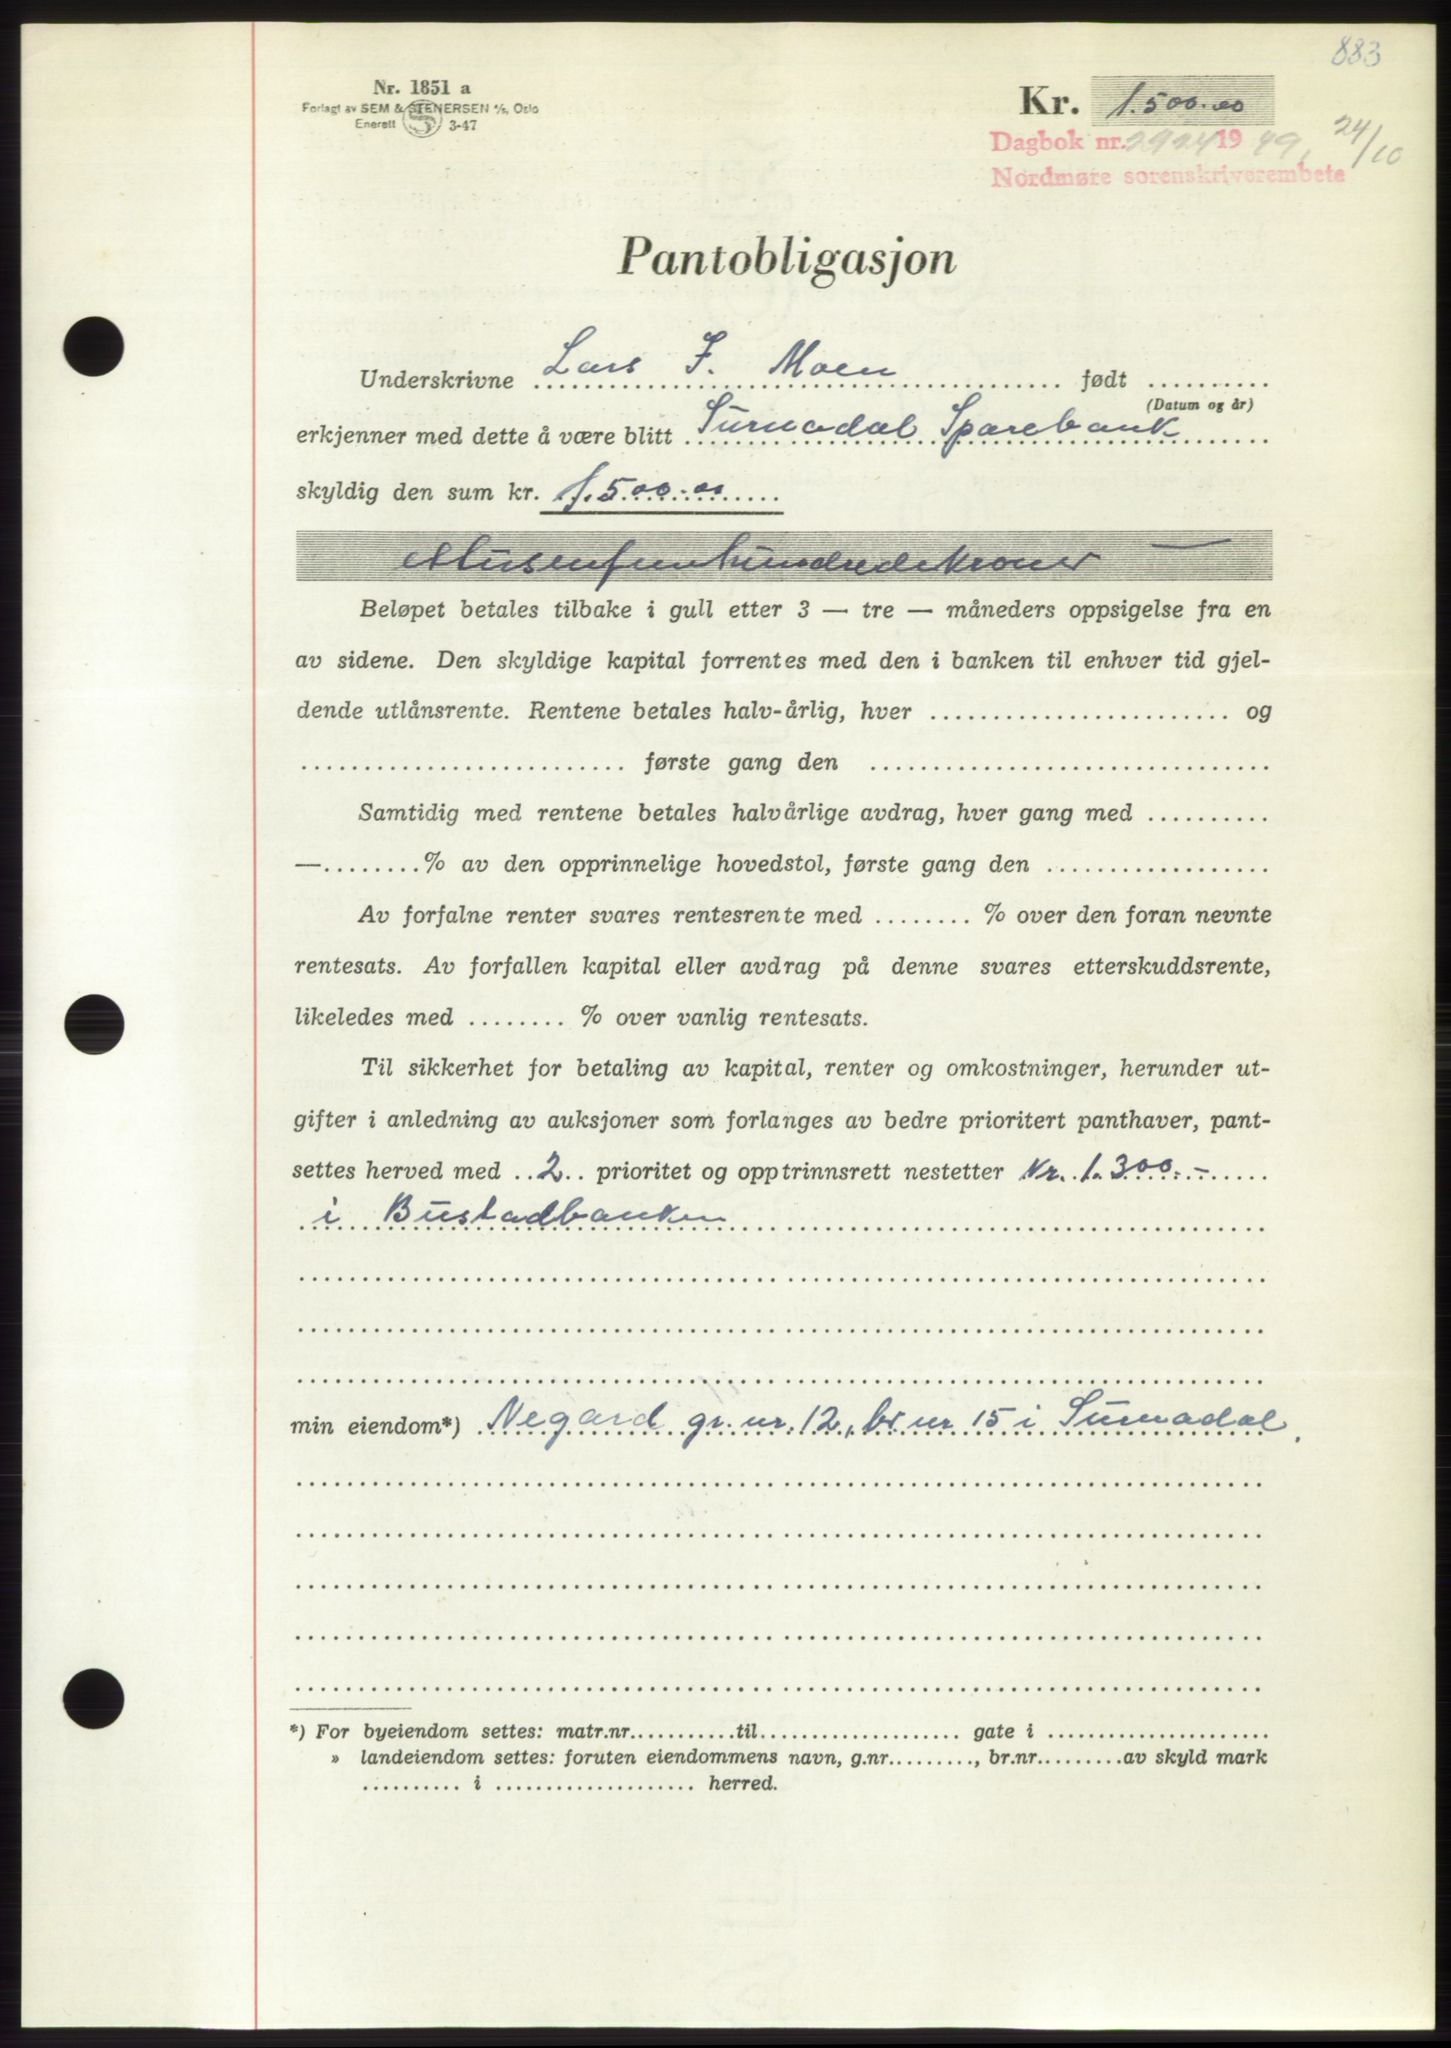 883
Nr. 1851 a
Forlagt av SEM & STENERSEN A/S, Oslo
Enerett 3-47
Kr. 1.500.00
Dagbok nr. 2924 1949, 24/10
Nordmøre sorenskriverembete
Pantobligasjon
Underskrivne Lars F. Moen født ..........
(Datum og år)
erkjenner med dette å være blitt Surnadal Sparebank
skyldig den sum kr. 1.500.00
Attusenfemhundredekroner —
Beløpet betales tilbake i gull etter 3 — tre — måneders oppsigelse fra en
av sidene. Den skyldige kapital forrentes med den i banken til enhver tid gjel-
dende utlånsrente. Rentene betales halv-årlig, hver ........................ og
.......................... første gang den ................................
Samtidig med rentene betales halvårlige avdrag, hver gang med ..........
—........% av den opprinnelige hovedstol, første gang den ..................
Av forfalne renter svares rentesrente med ........ % over den foran nevnte
rentesats. Av forfallen kapital eller avdrag på denne svares etterskuddsrente,
likeledes med ........ % over vanlig rentesats.
Til sikkerhet for betaling av kapital, renter og omkostninger, herunder ut-
gifter i anledning av auksjoner som forlanges av bedre prioritert panthaver, pant-
settes herved med ..2.. prioritet og opptrinnsrett nestetter Kr. 1.300.-
i Bustadbanken
min eiendom*) Negard gr. nr. 12, br. nr 15 i Surnadal.
*) For byeiendom settes: matr.nr...........til.................... gate i ......................
» landeiendom settes: foruten eiendommens navn, g.nr........., br.nr.........av skyld mark
.......... i .................... herred.